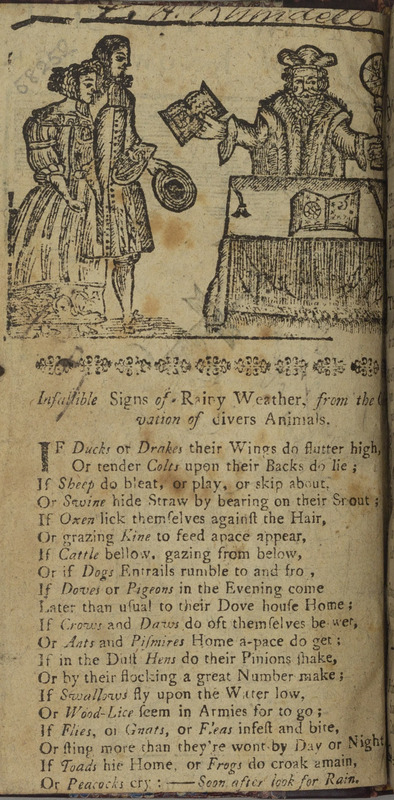 68250
Infallible Signs of Rainy Weather, from the
vation of divers Animals.
IF Ducks or Drakes their Wings do flutter high,
Or tender Colts upon their Backs do lie ;
If Sheep do bleat, or play, or skip about,
Or Swine hide Straw by bearing on their Snout ;
If Oxen lick themſelves againſt the Hair,
Or grazing Kine to feed apace appear,
If Cattle bellow, gazing from below,
Or if Dogs Entrails rumble to and fro ,
If Doves or Pigeons in the Evening come
Later than uſual to their Dove houſe Home ;
If Crows and Daws do oft themſelves be wet,
Or Ants and Piſmires Home a-pace do get ;
If in the Duſt Hens do their Pinions ſhake,
Or by their flocking a great Number make ;
If Swallows fly upon the Water low,
Or Wood-Lice ſeem in Armies for to go ;
If Flies, or Gnats, or Fleas infeſt and bite,
Or ſting more than they're wont by Day or Night
If Toads hie Home, or Frogs do croak amain,
Or Peacocks cry : — Soon after look for Rain.